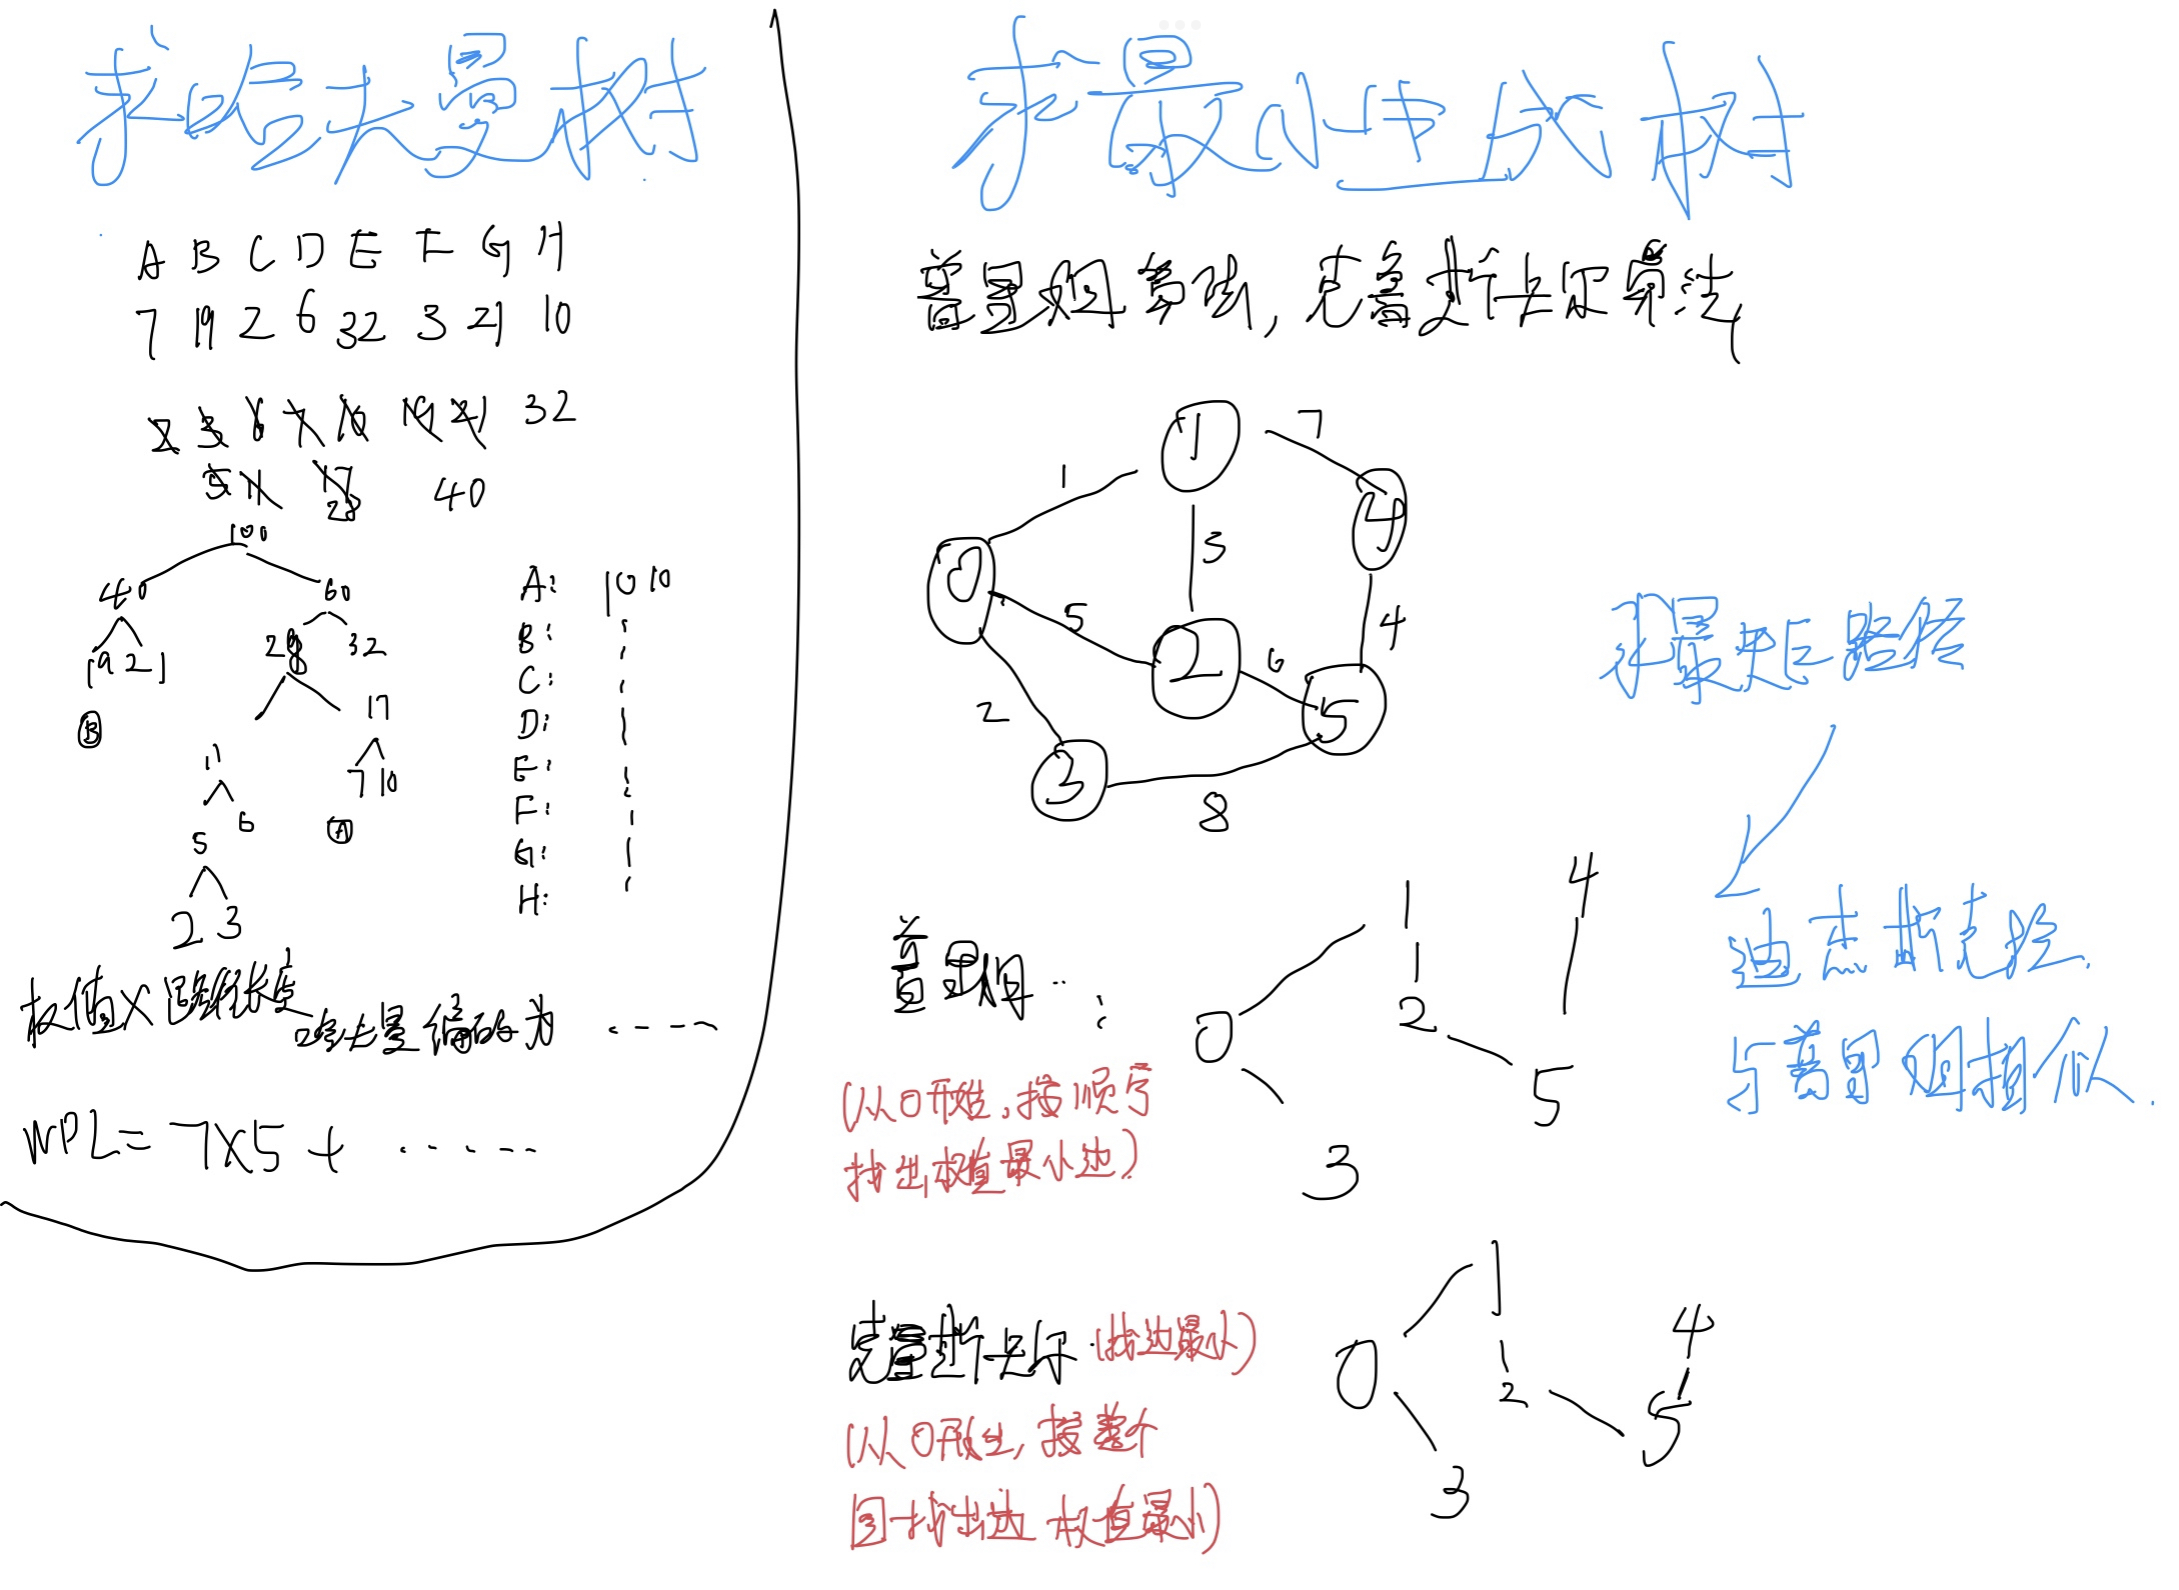 求哈夫曼树
A B C D E F G H
7 19 2 6 32 3 21 10
2 3 6 7 10 19 21 32
5 11 17 40
28
100
40 60
19 21 28 32
B
11 17
5 6 7 10
A
2 3
A: 1010
B:
C:
D:
E:
F:
G:
H:
权值X路径长度
哈夫曼编码为 ·····
WPL= 7X5 + ······
求最小生成树
普里姆算法, 克鲁斯卡尔算法
1 7
1
4
3
0
5
2
6
4
2
5
3
8
普里姆··:
(从0开始,按顺序
找出权值最小边)
1 4
0 2
5
3
克鲁斯卡尔·(找边最小)
(从0开始,按整个
图找出边权值最小)
1
4
0 2
5
3
求最短路径
迪杰斯克拉.
与普里姆相似.